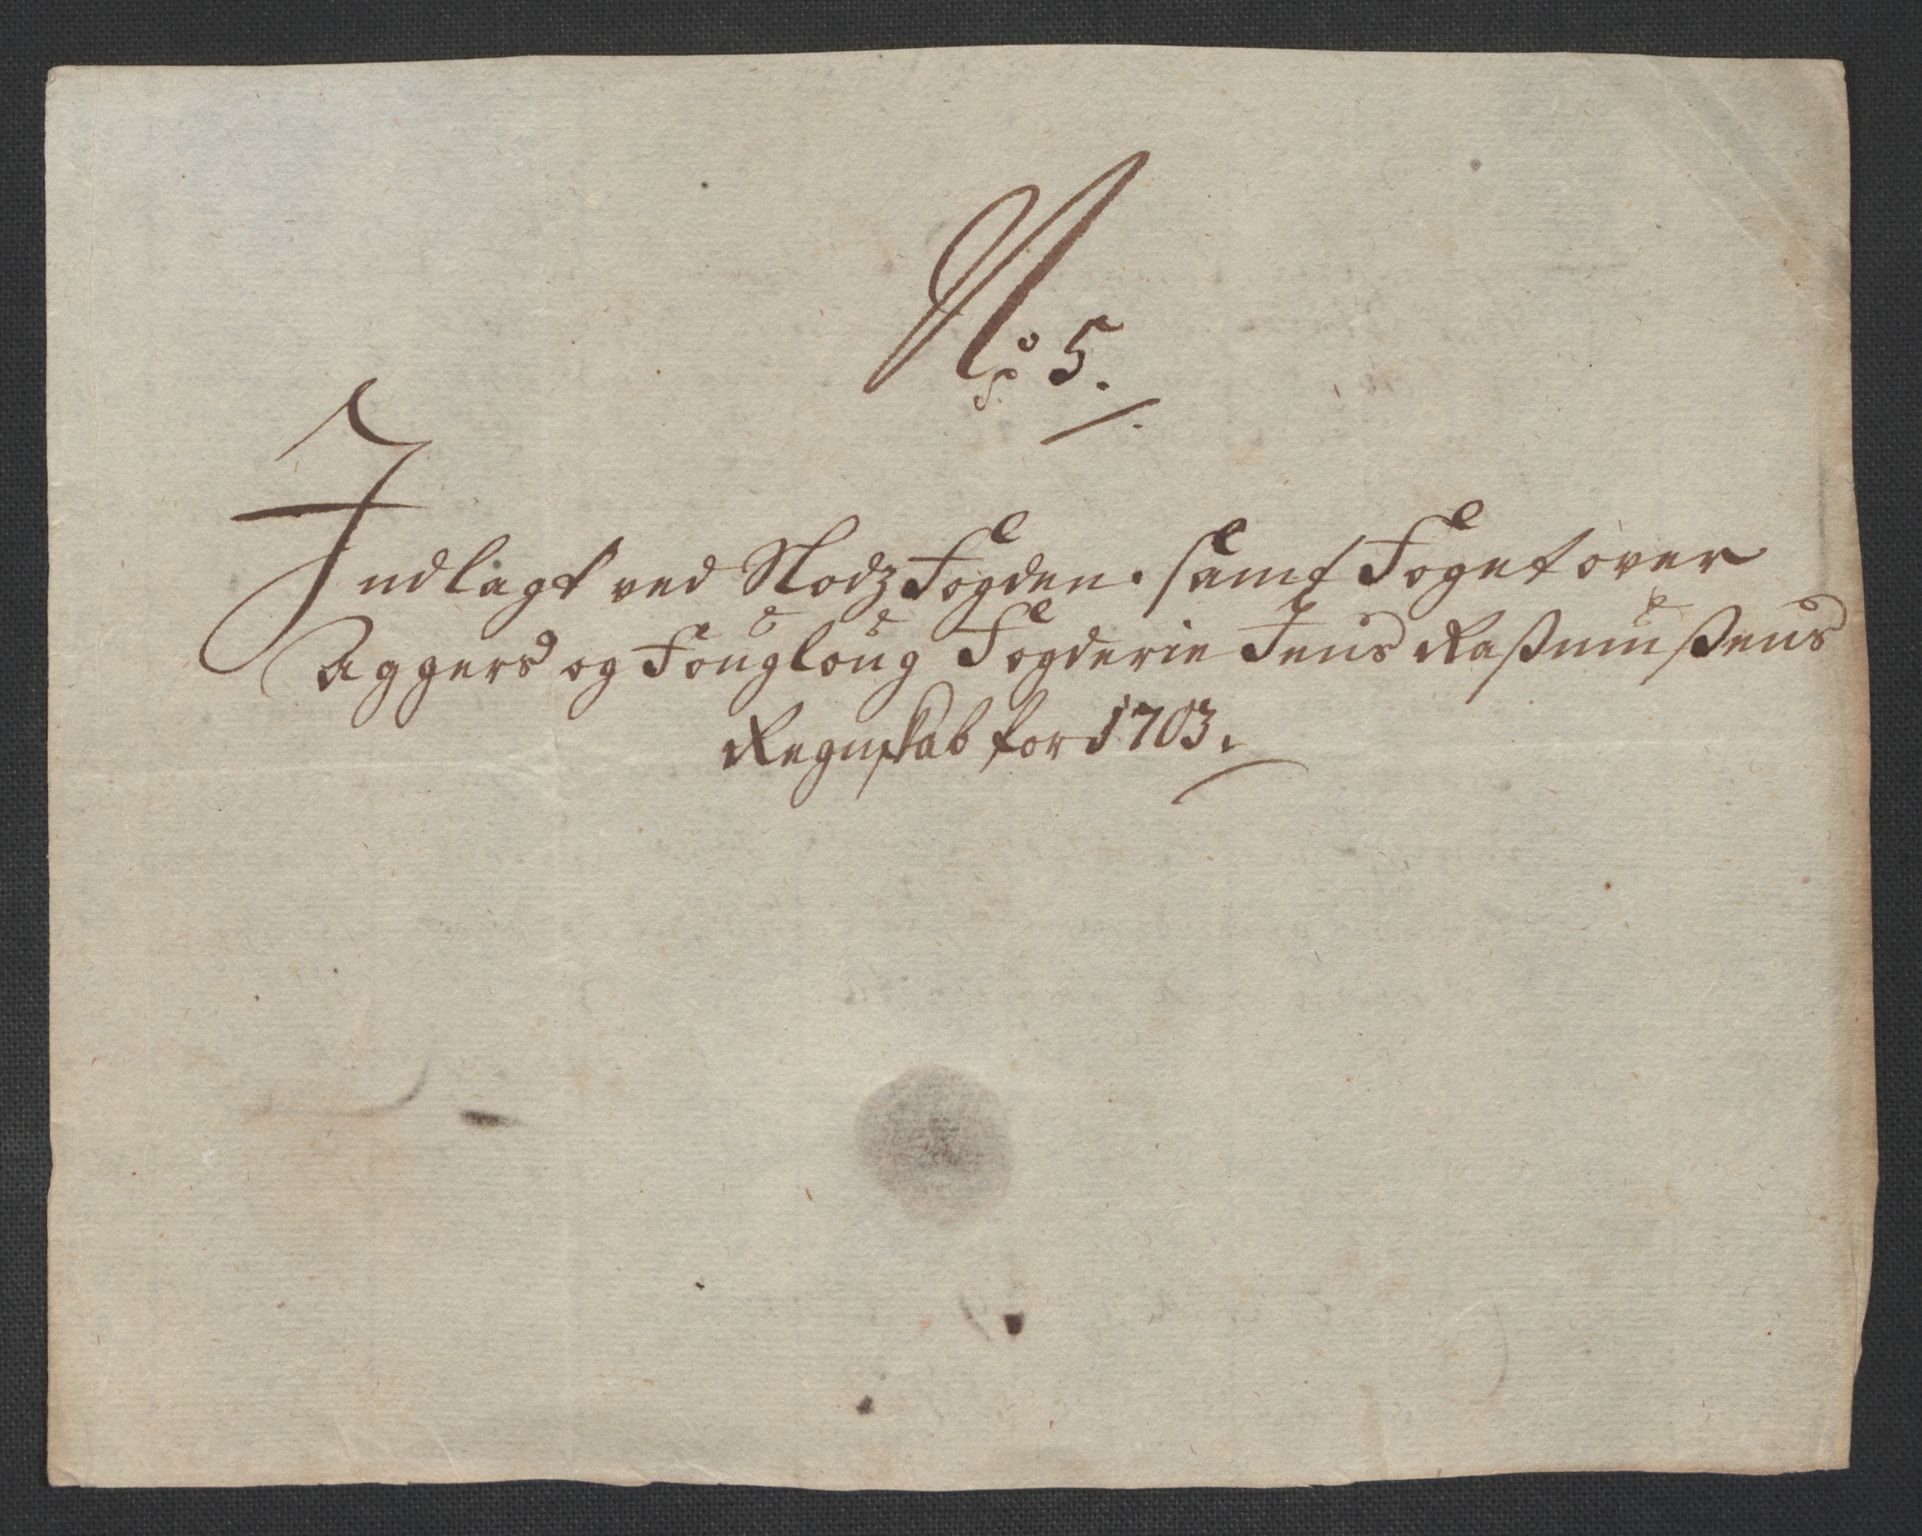 No 5.
Indlagt ved Slodz Fogden. samt Foget over
Aggers og Fougloug Fogderie Jens Raßmußens
Regnskab for 1703.